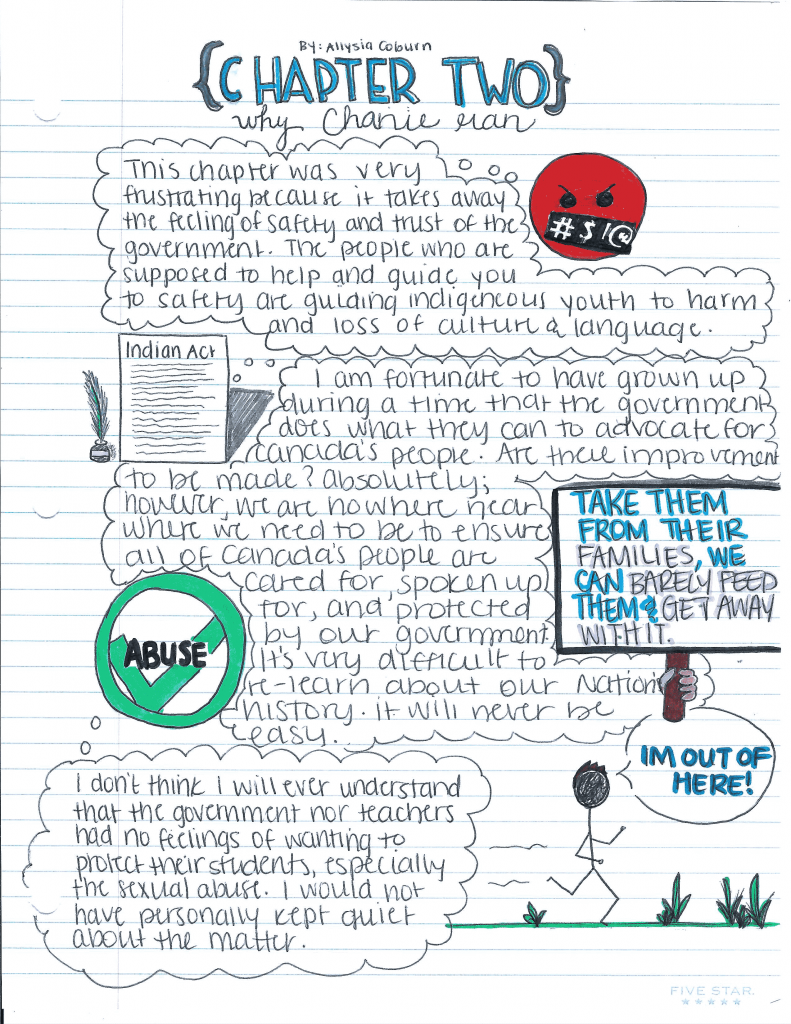 By: Allysia Coburn
{CHAPTER TWO}
why Chanie ran
This chapter was very
frustrating because it takes away
the feeling of safety and trust of the
government. The people who are
supposed to help and guide you
to safety are guiding indigeneous youth to harm
and loss of culture & language.
#$!@
Indian Act
I am fortunate to have grown up
during a time that the government
does what they can to advocate for
Canada's people. Are there improvement
to be made? Absolutely;
however, we are nowhere near
where we need to be to ensure
all of Canada's people are
cared for, spoken up
for, and protected
by our government.
It's very difficult to
re-learn about our Nation's
history. it will never be
easy.
TAKE THEM
FROM THEIR
FAMILIES, WE
CAN BARELY FEED
THEM & GET AWAY
WITH IT.
ABUSE
IM OUT OF
HERE!
I don't think I will ever understand
that the government nor teachers
had no feelings of wanting to
protect their students, especially
the sexual abuse. I would not
have personally kept quiet
about the matter.
FIVE STAR